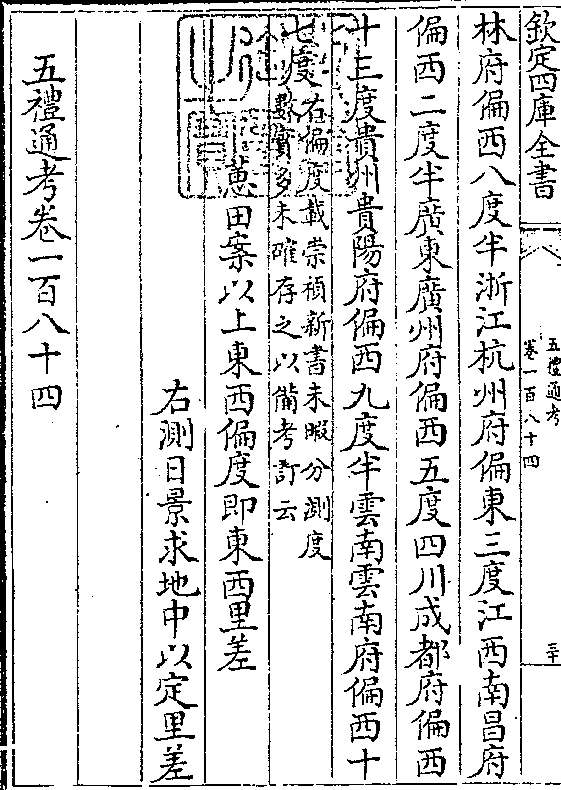 欽定四庫全書
五禮通考
卷一百八十四
三十
林府偏西八度半浙江杭州府偏東三度江西南昌府
偏西二度半廣東廣州府偏西五度四川成都府偏西
十三度貴州貴陽府偏西九度半雲南雲南府偏西十
七度右偏度載崇禎新書未暇分測度
數實多未確存之以備考訂云
蕙田案以上東西偏度即東西里差
右測日景求地中以定里差
五禮通考卷一百八十四